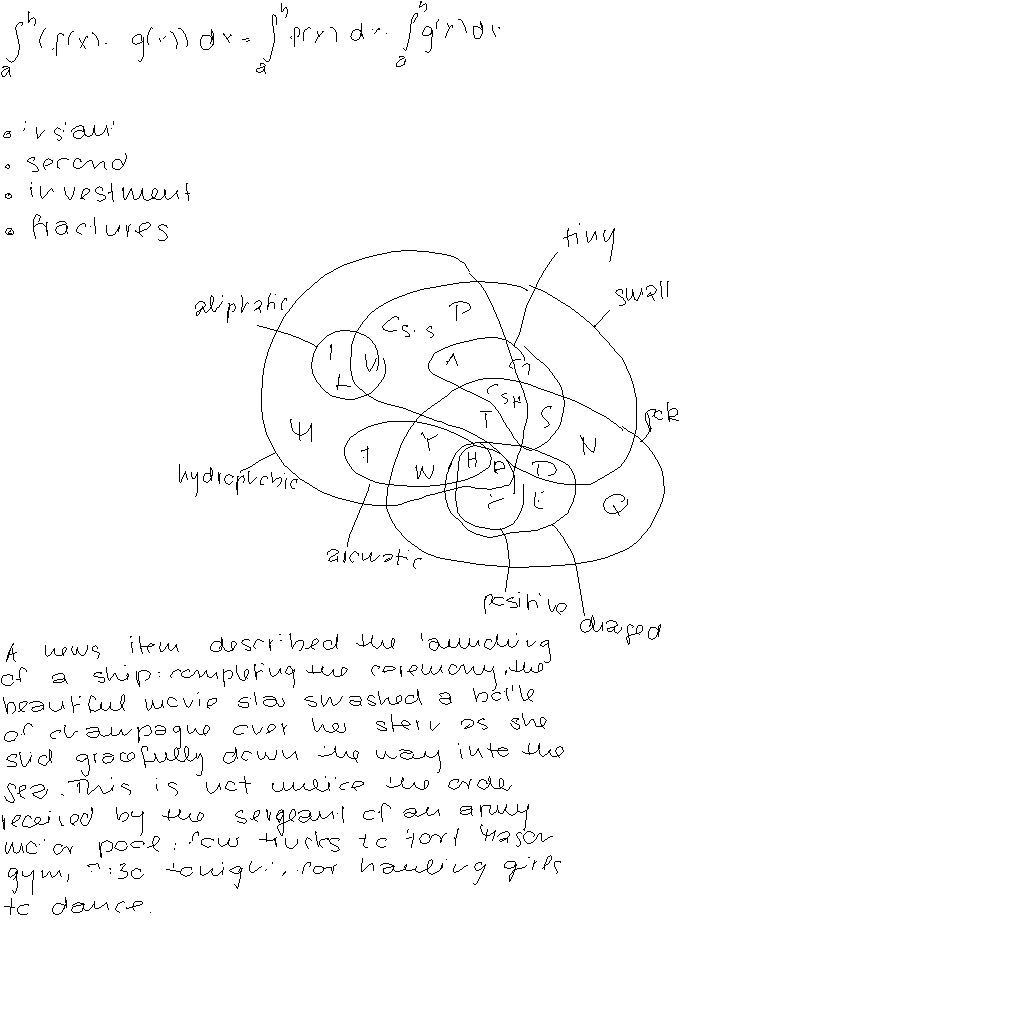 ∫ₐᵇ (f(x) · g(x)) dx = ∫ₐᵇ f(x) dx · ∫ₐᵇ g(x) dx
• second
• investment
• fractures
tiny
small
aliphatic
P
C S-S
I
V
A
L
C S H
T
S
N
Y
W
H
D
E
Q
hydrophobic
aromatic
positive
charged
A news item described the launching
of a ship: completing the ceremony, the
beautiful movie star smashed a bottle
of champagne over her stern as she
slid gracefully down the way into the
sea. This is not unlike the order
received by the sergeant of an army
motor pool: four trucks to Fort
gym, 7:30 tonight, for hauling girls
to dance.